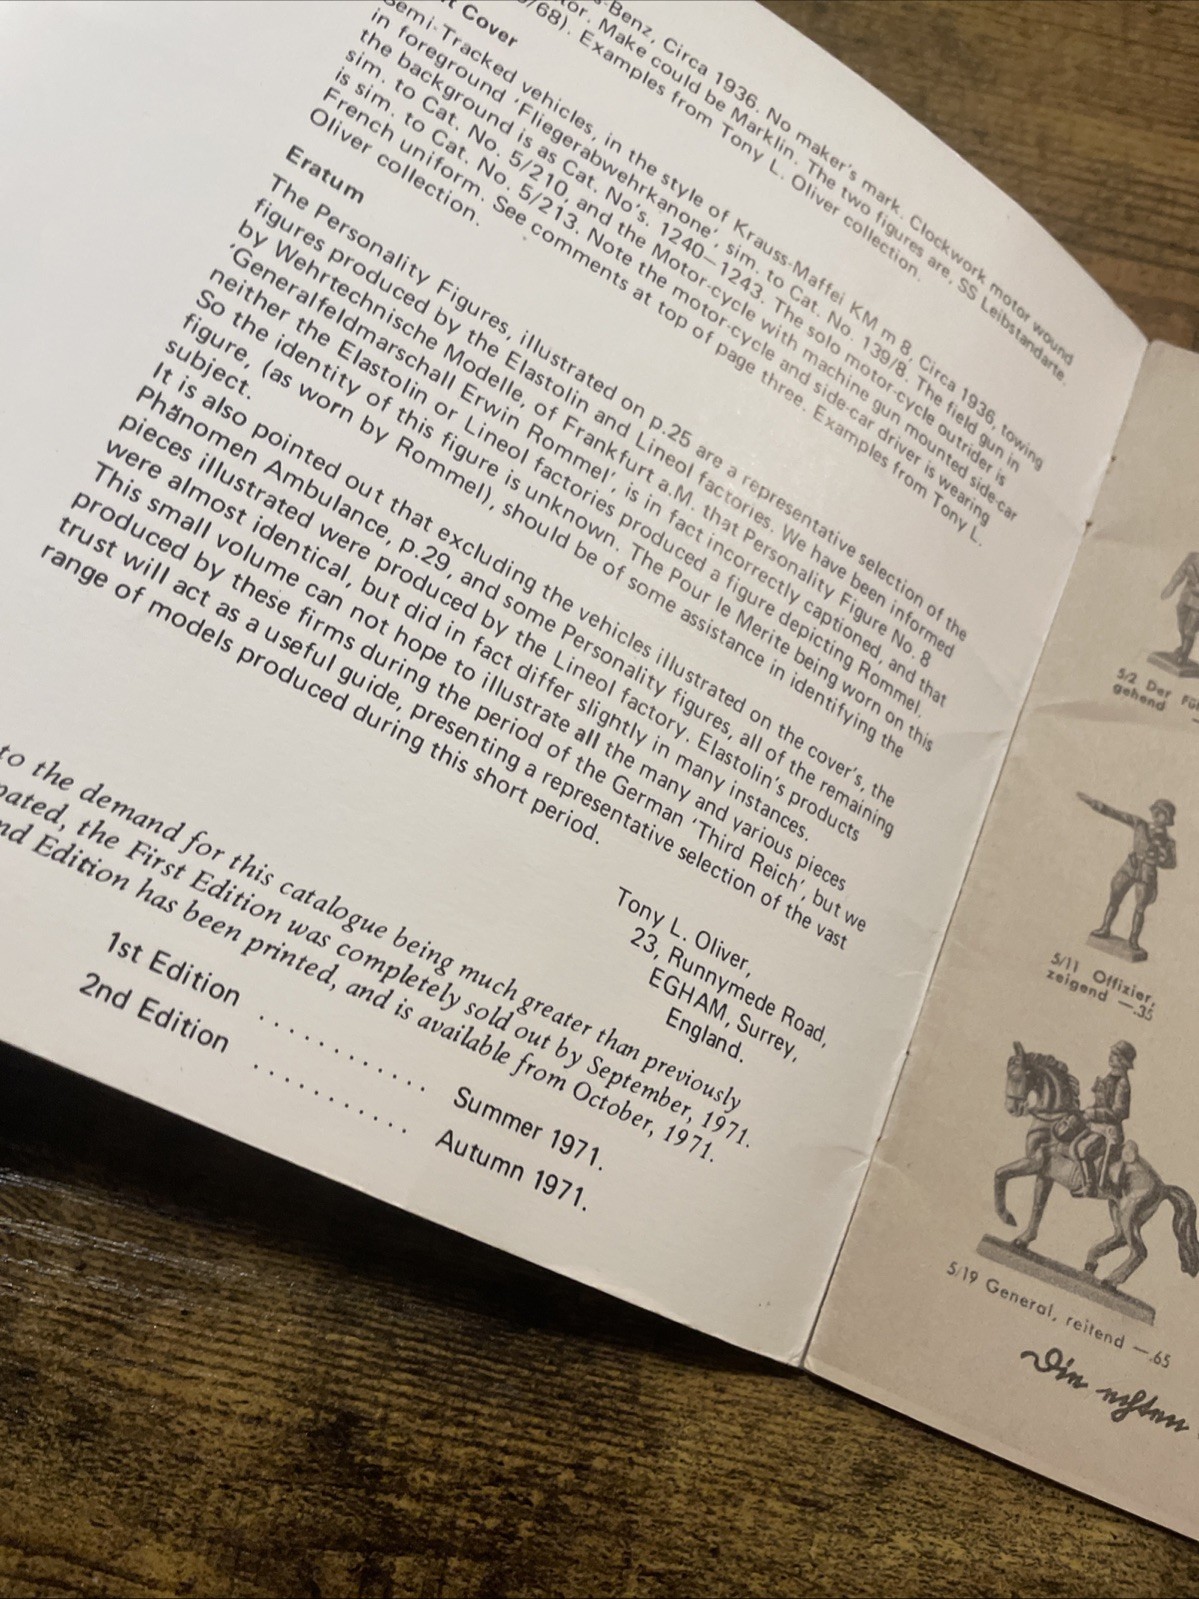 -Benz, Circa 1936. No maker's mark. Clockwork motor wound
tor. Make could be Marklin. The two figures are, SS Leibstandarte.
/68). Examples from Tony L. Oliver collection.
t Cover
Semi-Tracked vehicles, in the style of Krauss-Maffei KM m 8, Circa 1936, towing
in foreground 'Fliegerabwehrkanone', sim. to Cat. No. 139/8. The field gun in
the background is as Cat. No's. 1240–1243. The solo motor-cycle outrider is
sim. to Cat. No. 5/210, and the Motor-cycle with machine gun mounted side-car
is sim. to Cat. No. 5/213. Note the motor-cycle and side-car driver is wearing
French uniform. See comments at top of page three. Examples from Tony L.
Oliver collection.
Eratum
The Personality Figures, illustrated on p.25 are a representative selection of the
figures produced by the Elastolin and Lineol factories. We have been informed
by Wehrtechnische Modelle, of Frankfurt a.M. that Personality Figure No. 8
'Generalfeldmarschall Erwin Rommel', is in fact incorrectly captioned, and that
neither the Elastolin or Lineol factories produced a figure depicting Rommel.
So the identity of this figure is unknown. The Pour le Merite being worn on this
figure, (as worn by Rommel), should be of some assistance in identifying the
subject.
It is also pointed out that excluding the vehicles illustrated on the cover's, the
Phänomen Ambulance, p.29, and some Personality figures, all of the remaining
pieces illustrated were produced by the Lineol factory. Elastolin's products
were almost identical, but did in fact differ slightly in many instances.
This small volume can not hope to illustrate all the many and various pieces
produced by these firms during the period of the German 'Third Reich', but we
trust will act as a useful guide, presenting a representative selection of the vast
range of models produced during this short period.
Tony L. Oliver,
23, Runnymede Road,
EGHAM, Surrey,
England.
to the demand for this catalogue being much greater than previously
pated, the First Edition was completely sold out by September, 1971.
nd Edition has been printed, and is available from October, 1971.
1st Edition . . . . . . . . . . . Summer 1971.
2nd Edition . . . . . . . . . . . Autumn 1971.
5/2 Der Fü
gehend —
5/11 Offizier,
zeigend —.35
5/19 General, reitend —.65
Die echten